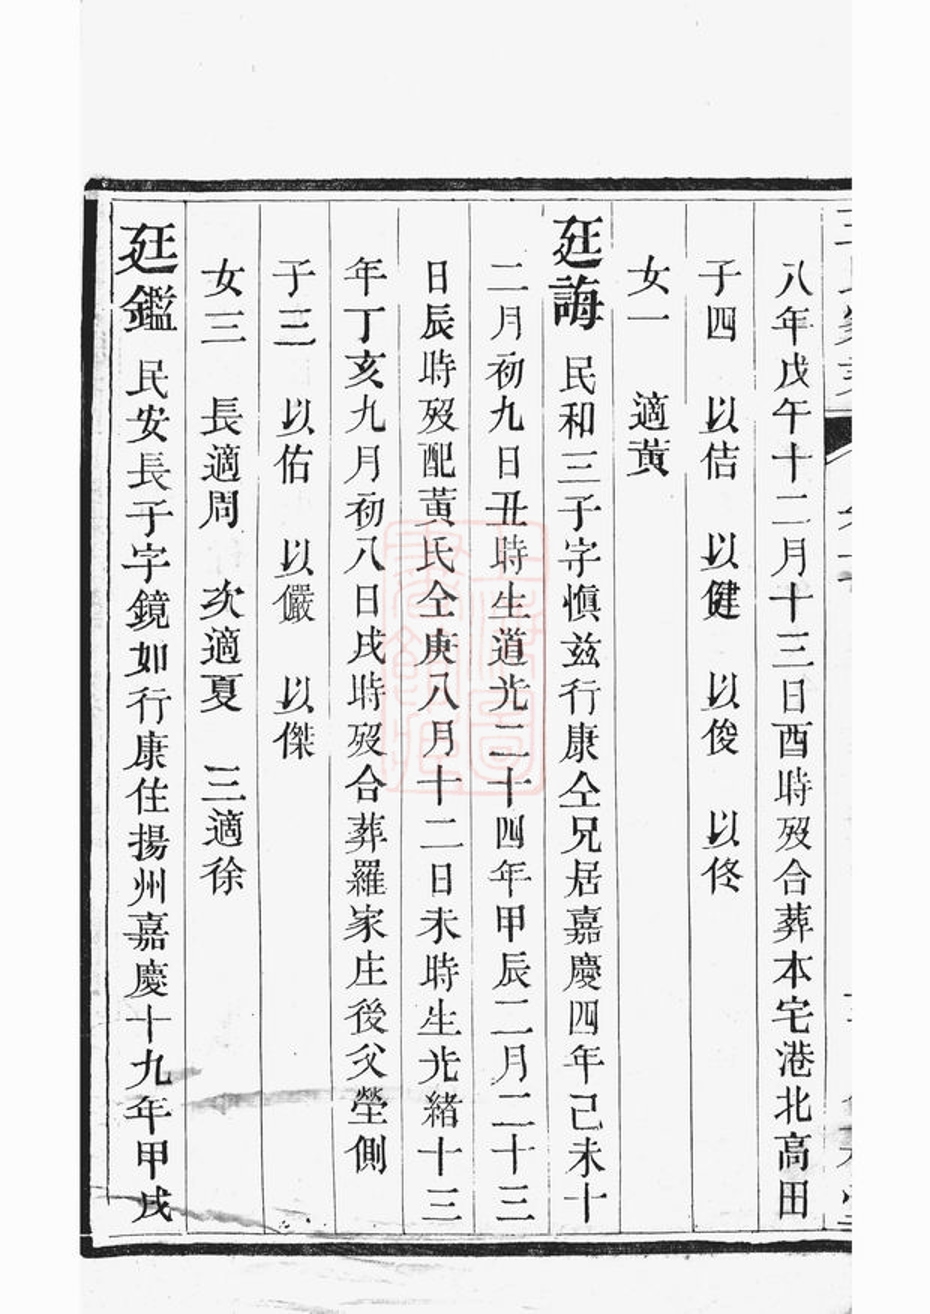 八年戊午十二月十三日酉時歿合葬本宅港北高田
子四 以佶 以健 以俊 以佟
女一 適黄
廷誨 民和三子字慎兹行康仝兄居嘉慶四年己未十
二月初九日丑時生道光二十四年甲辰二月二十三
日辰時歿配黄氏仝庚八月十二日未時生光緒十三
年丁亥九月初八日戌時歿合葬羅家庄後父塋側
子三 以佑 以儼 以傑
女三 長適周 次適夏 三適徐
廷鑑 民安長子字鏡如行康住揚州嘉慶十九年甲戌